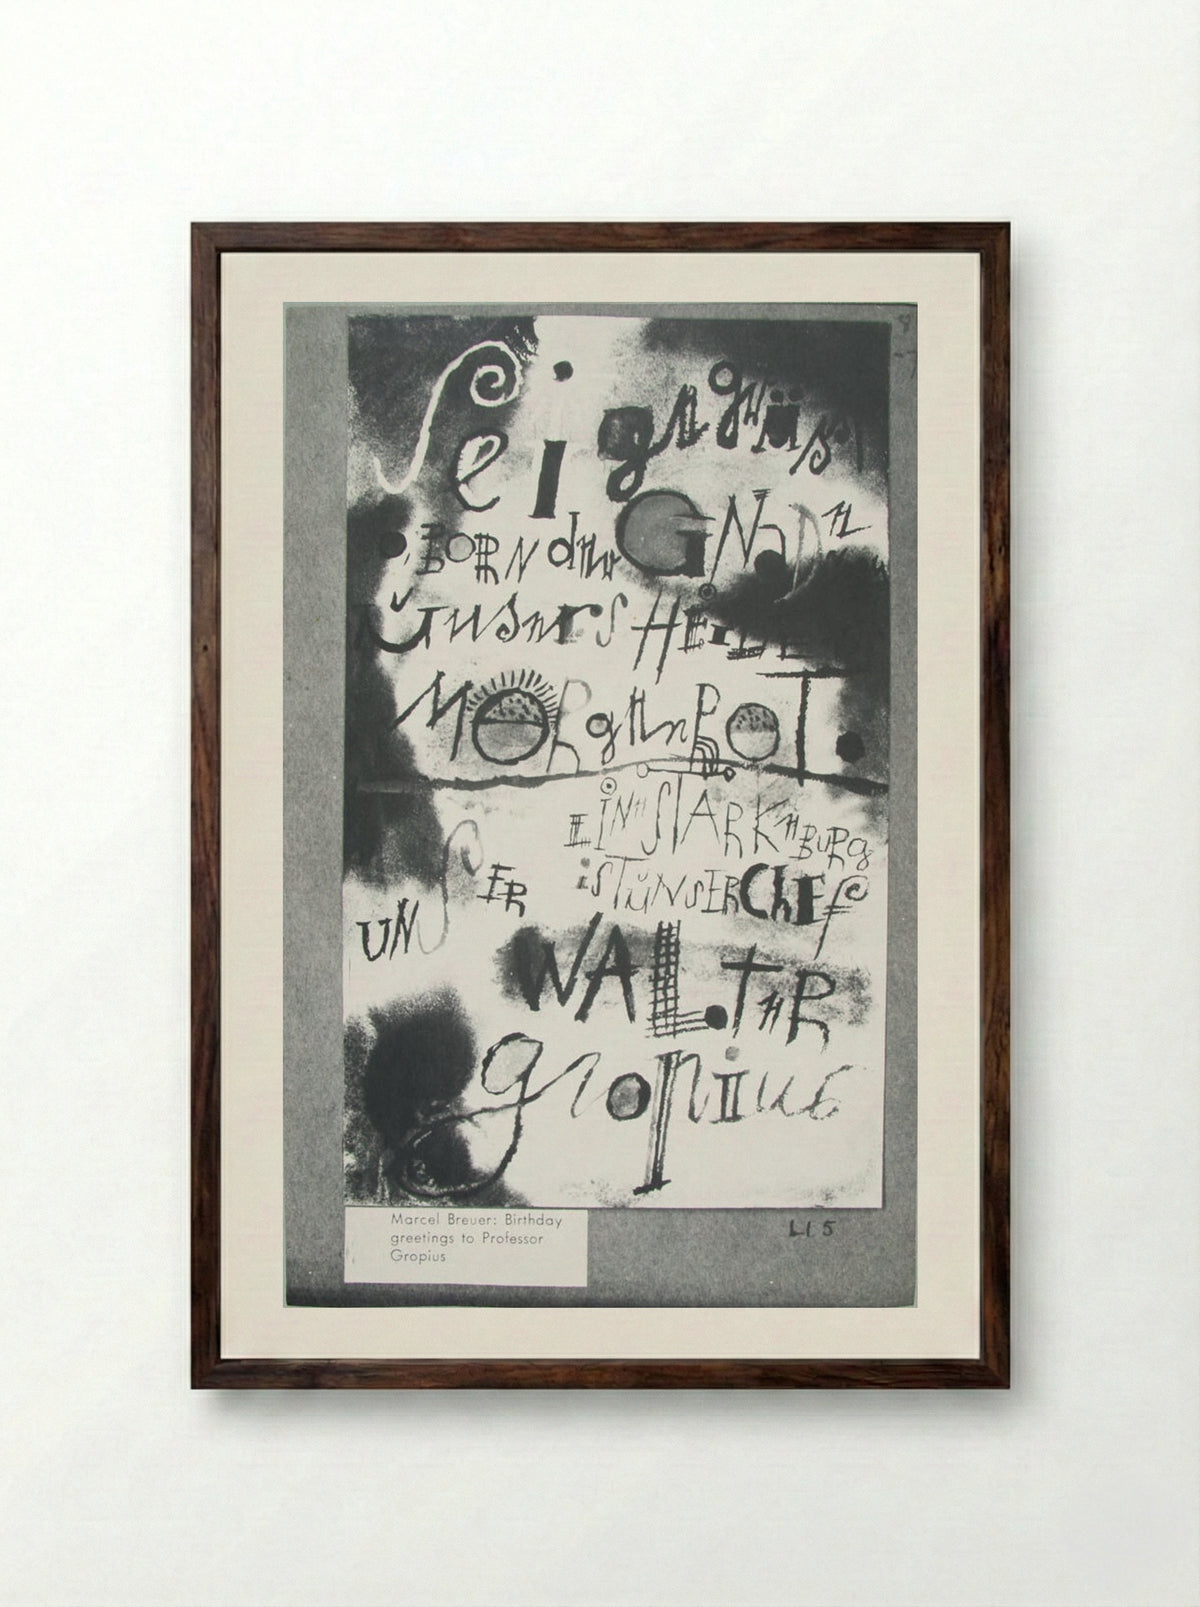 Sei gegrüßt
BORN der GNADEN
UNSERS HEILES
MORgEnROT.
EINE STARKE BURG
UNSER iST UNSER ChEF
WALTER
gropius
Marcel Breuer: Birthday
greetings to Professor
Gropius
L15